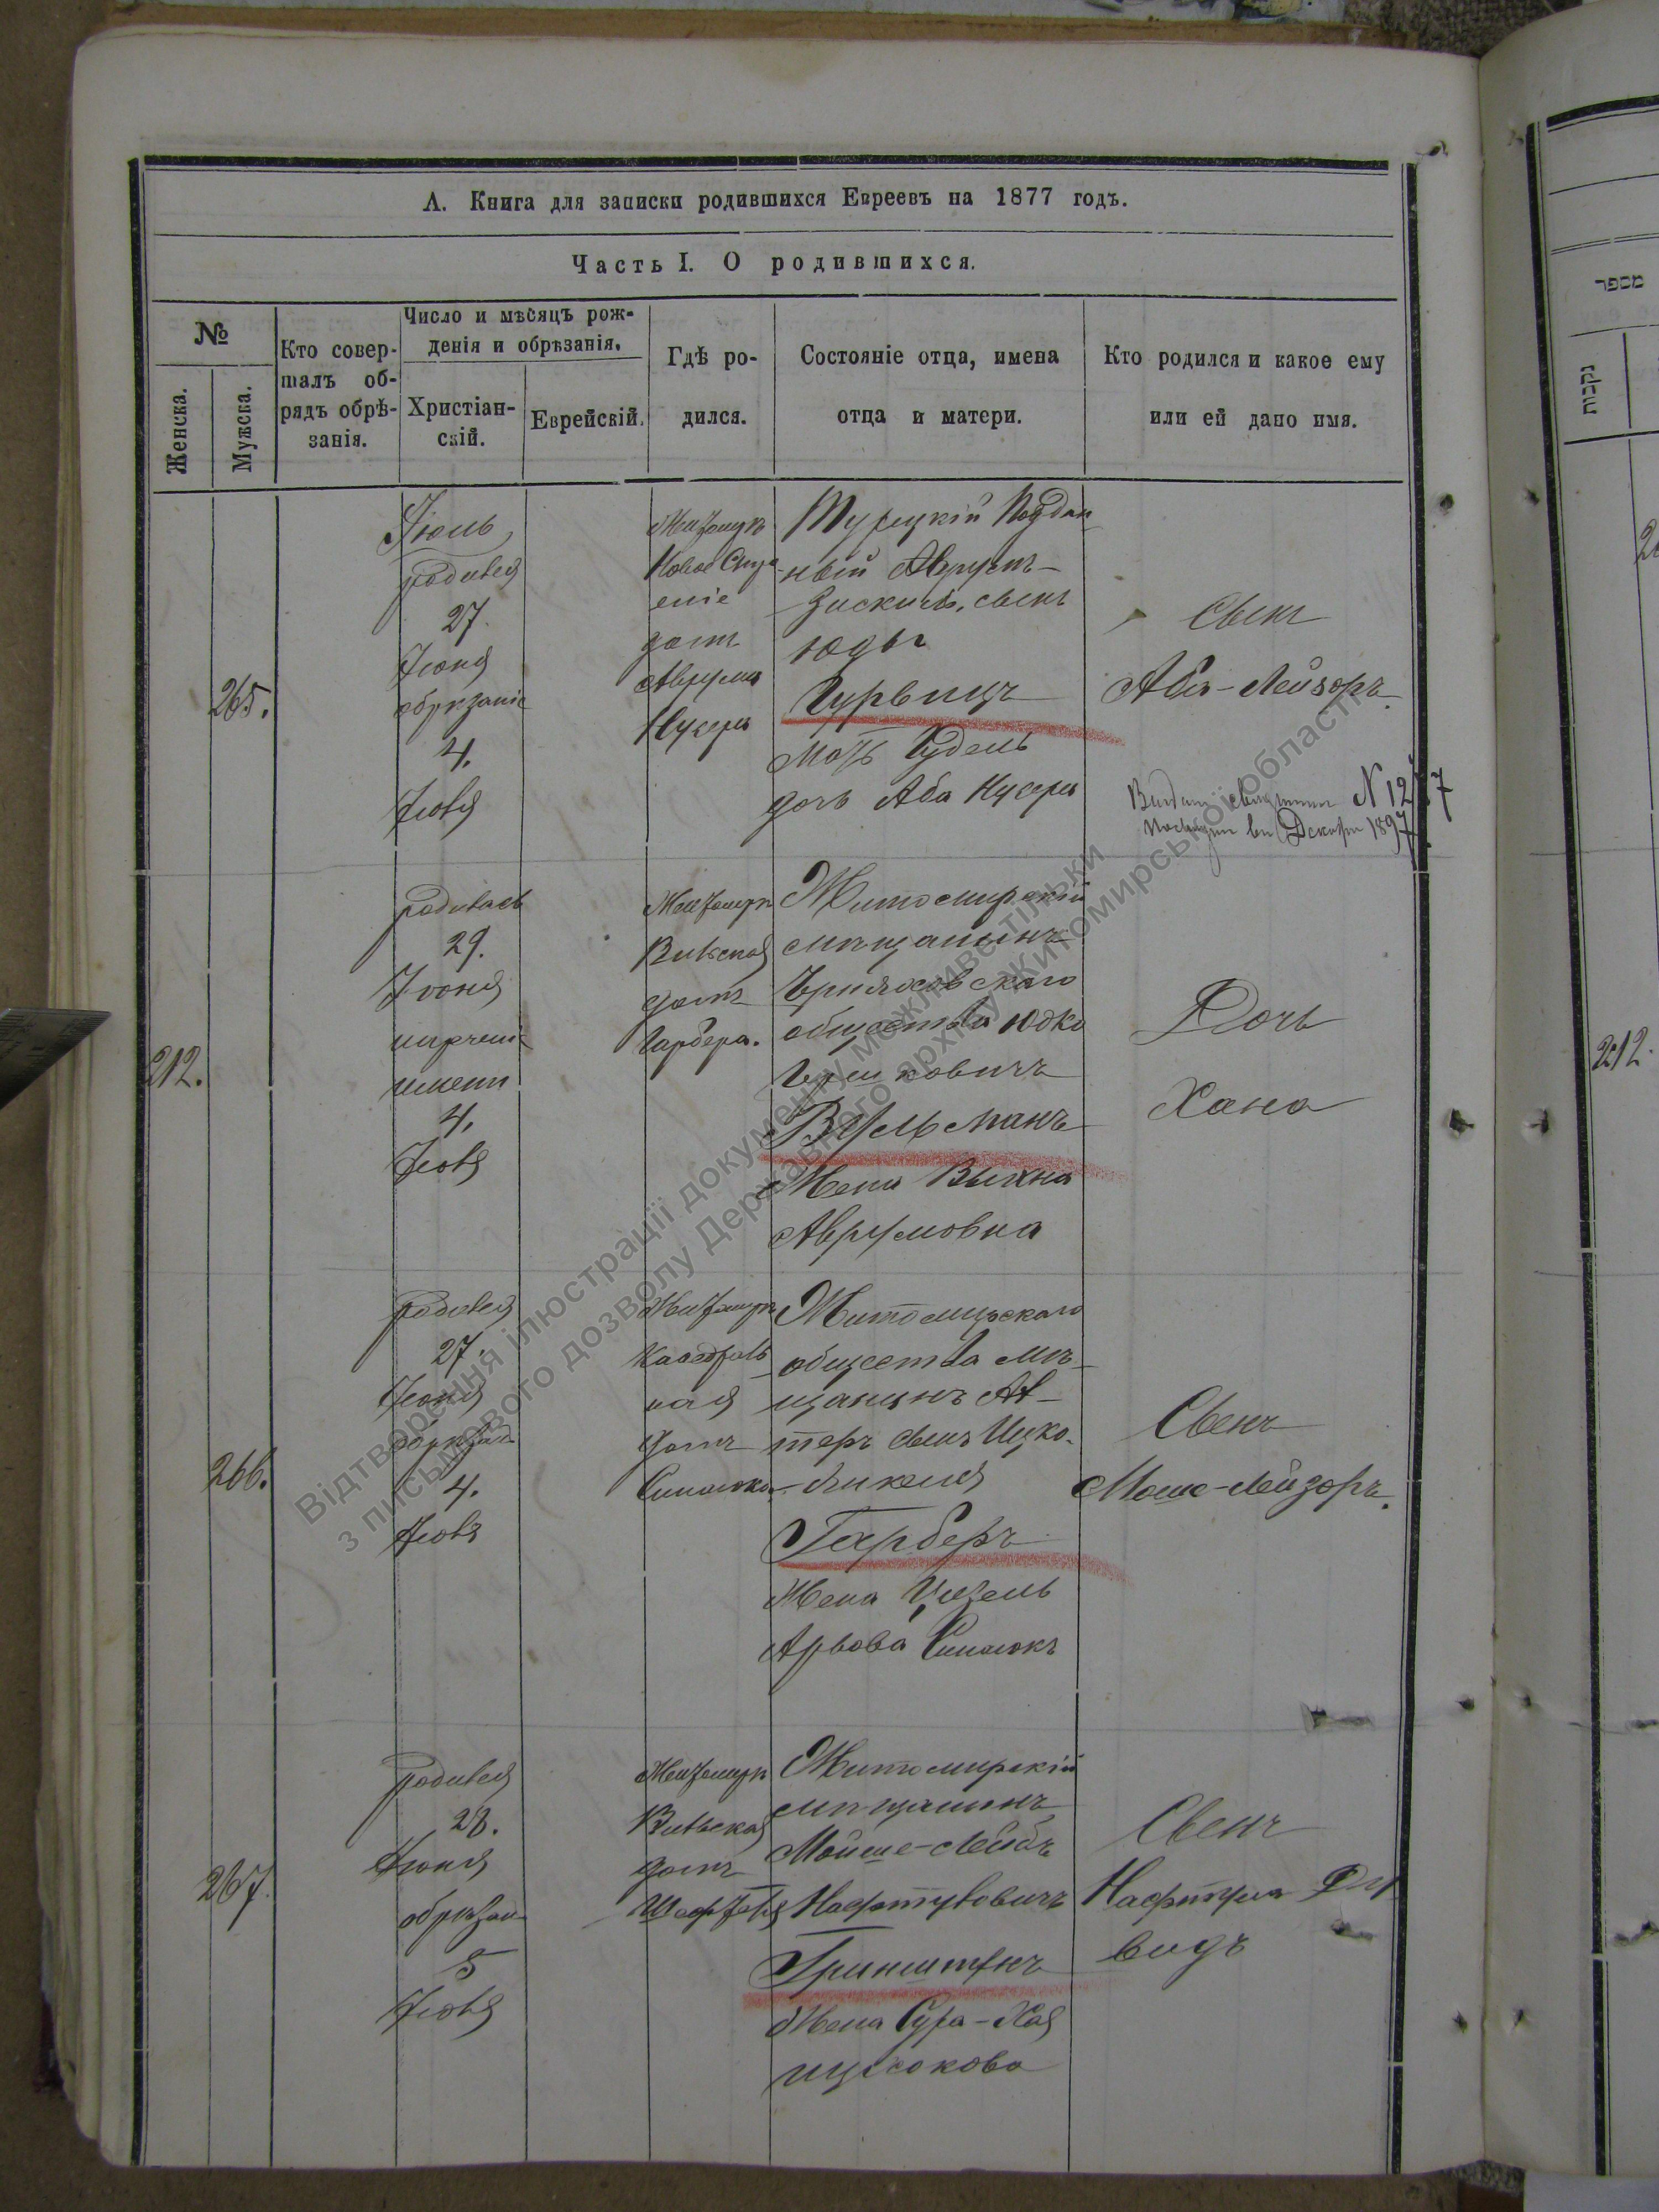 А. Книга для записки родившихся Евреевъ на 1877 годъ.
Часть I. О родившихся.
№
Женска.
Мужска.
Кто совер-
шалъ об-
рядъ обрѣ-
занія.
Число и мѣсяцъ рож-
денія и обрѣзанія.
Христіан-
скій.
Еврейскій.
Гдѣ ро-
дился.
Состояніе отца, имена
отца и матери.
Кто родился и какое ему
или ей дано имя.
265.
Іюль
родився
27.
Іюня
обрѣзаніе
4.
Іюля
Житоміръ
Новое
еніе
домъ
Аврума
Кусера
Турецкій Поддан
ный Аврумъ-
Зискинъ, сынъ
Юды
Гурвицъ
мать Гудель
дочь Аба Кусера
Сынъ
Аба-Лейзоръ.
Декабря 1897
212.
родилась
29.
Іюня
нареченіе
имени
4.
Іюля
Житоміръ
Вильская
домъ
Гарбера.
Житомирскій
мѣщанинъ
Черняховскаго
общества Юдко
Гершковичъ
Вельманъ
Жена Выхна
Аврумовна
Дочь
Хана
266.
родився
27.
Іюня
обрѣзан
4.
Іюля
Житоміръ
Каѳедраль
ная
домъ
Синалюка
Житомирскаго
общества мѣ-
щанинъ Ал-
теръ сынъ Ицко-
Янкеля
Гарберъ
Жена
Синалюкъ
Сынъ
Моше-Лейзоръ.
267.
родився
28.
Іюня
обрѣзан
5
Іюля
Житоміръ
Вильская
домъ
Житомирскій
мѣщанинъ
Мойше-Лейбъ
Нафтуловичъ
Гринштейнъ
Жена Сура-Хая
Ицкокова
Сынъ
Нафтула Да
видъ
מספר
נקבות
212.
Відтворення ілюстрації документу можливе тільки
з письмового дозволу Державного архіву Житомирської області